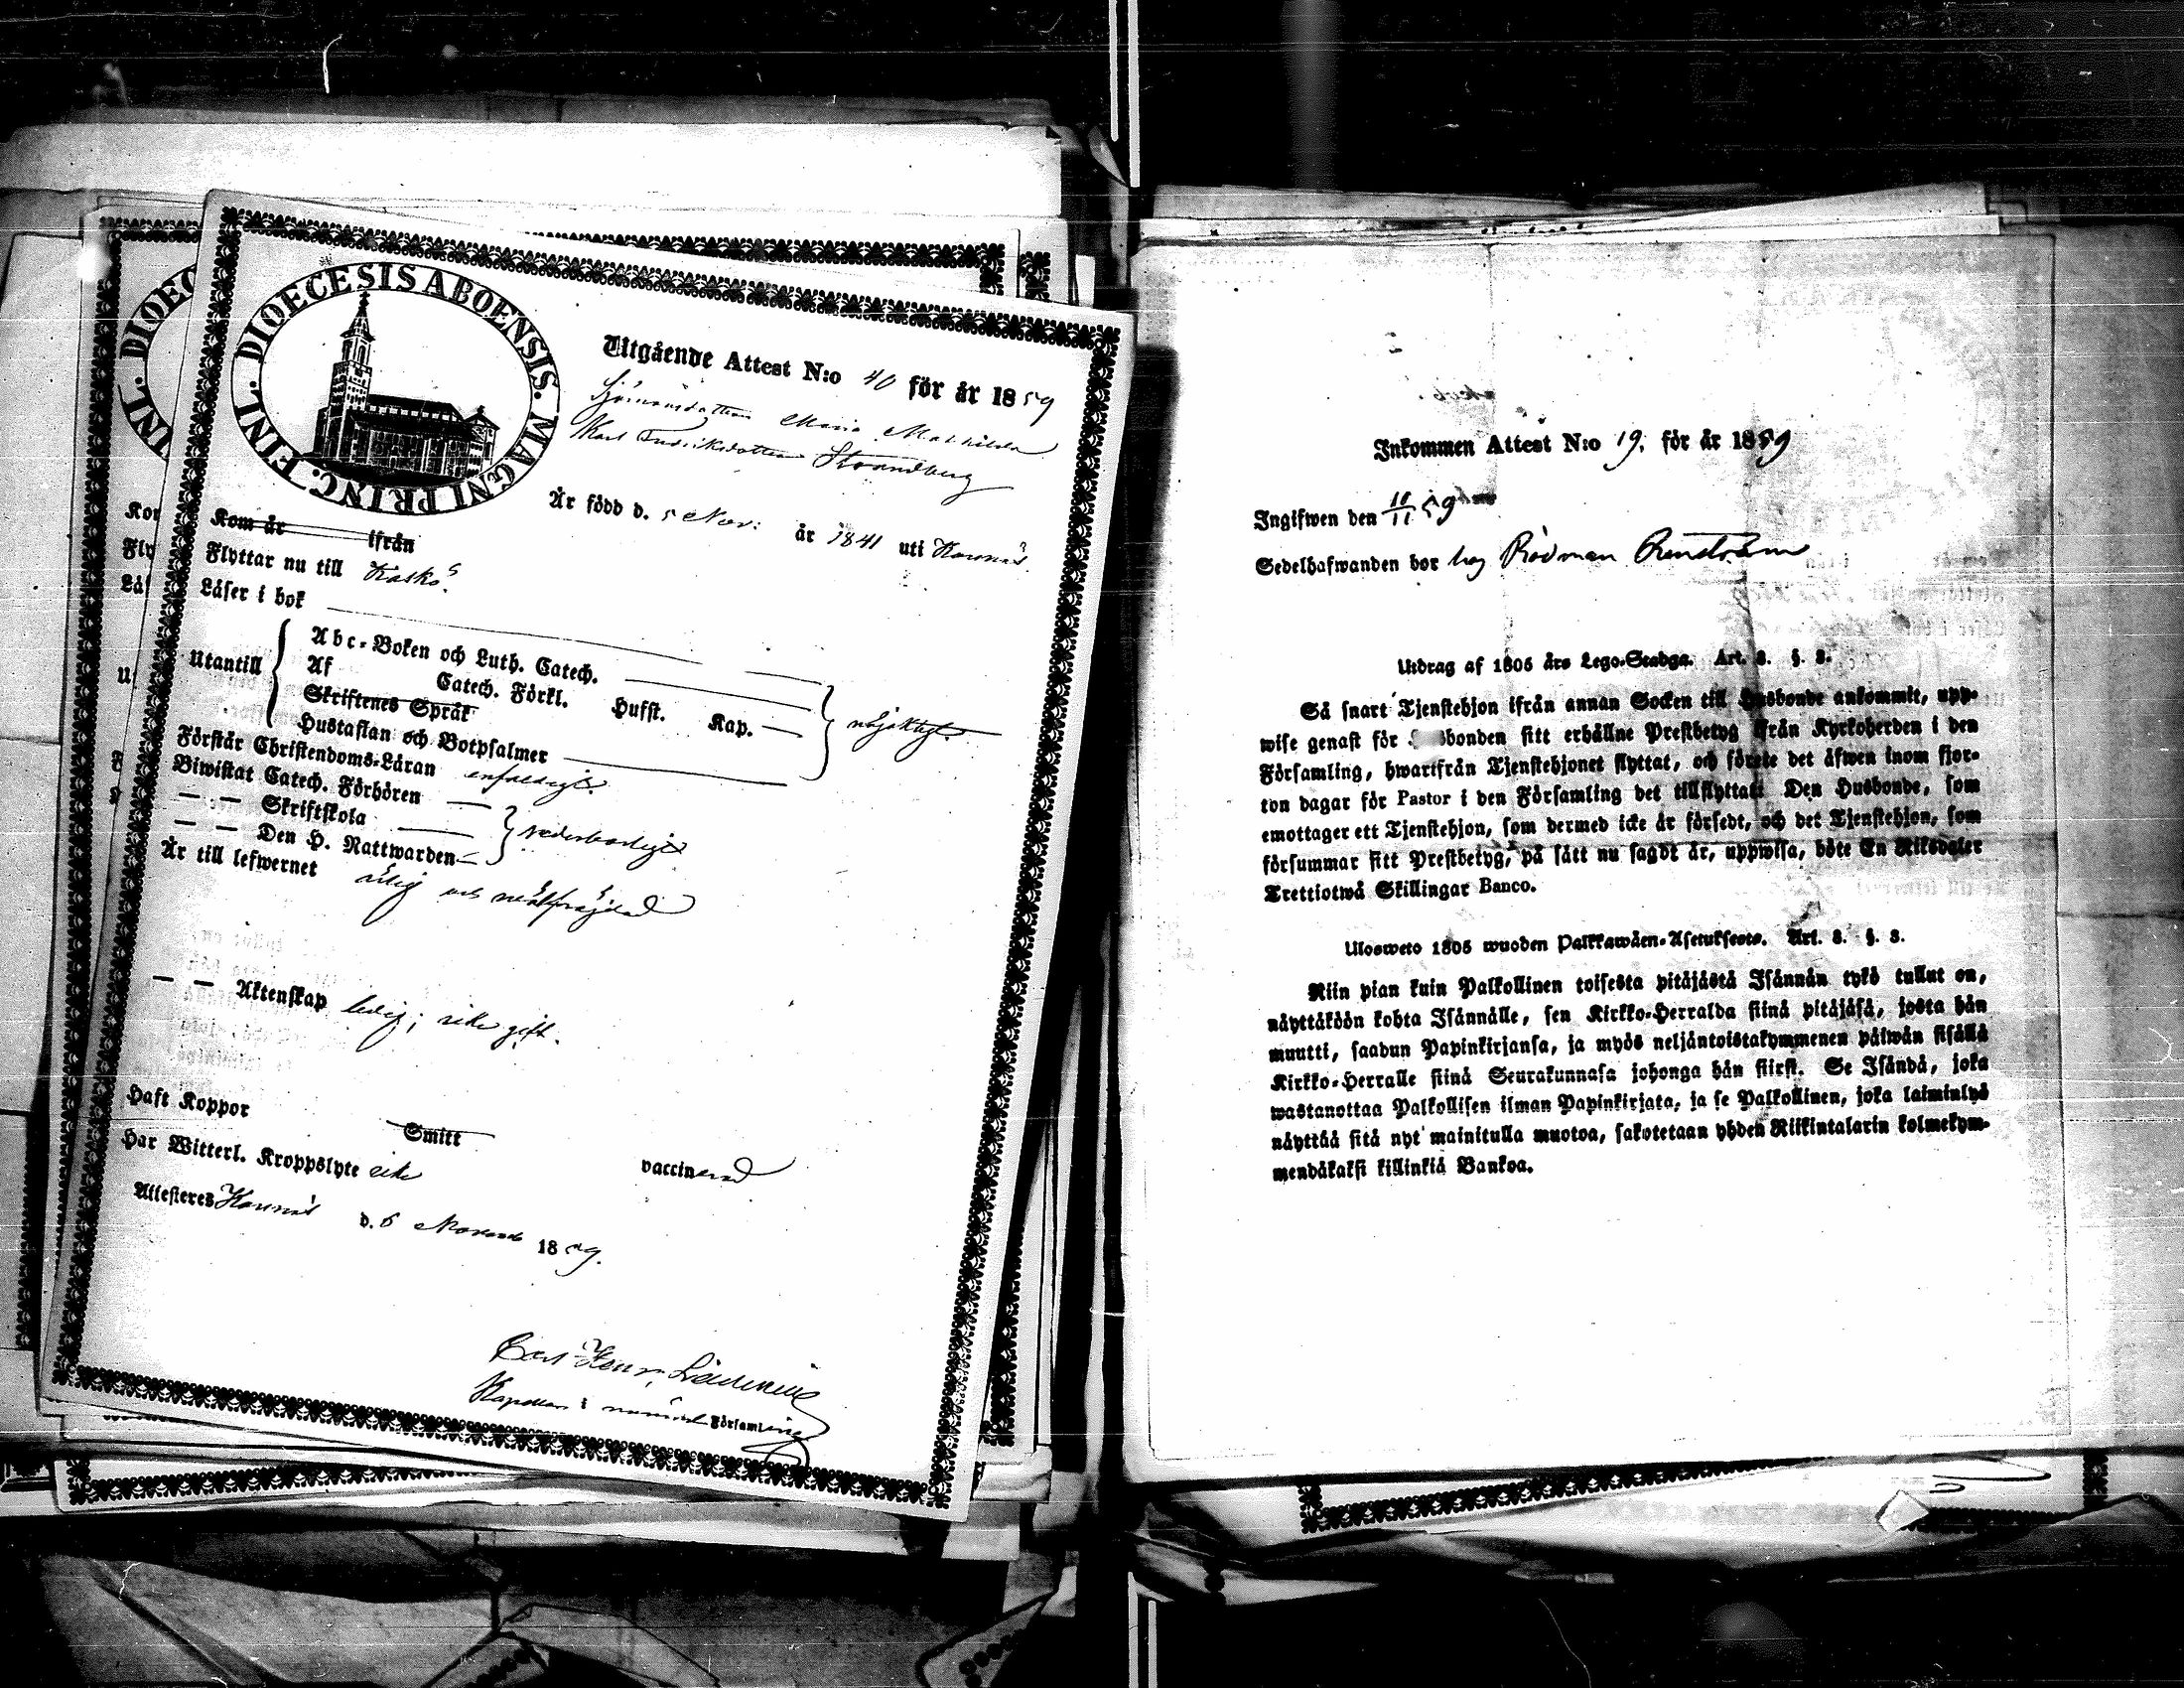 DIOECESIS ABOENSIS. MAGNI PRINC. FINL.
Utgående Attest N:o 40 för år 1859
Sjömansdottren Maria Mathilda
Karl Fredriksdotter Strandberg
Är född d. 5 Nov: år 1841 uti
Kom år ifrån
Flyttar nu till Kaskö.
Läser i bok
Utantill
Abc-Boken och Luth. Catech.
Af Catech. Förkl. Hufst. Kap.
Skriftenes Språk
Hustaflan och Botpsalmer
nöjaktigt.
Förstår Christendoms-Läran enfaldigt.
Biwistat Catech. Förhören
— — Skriftskola
— — Den H. Nattwarden
vederbörligt
Är till lefwernet ärlig och wälfräjdad
— — Äktenskap ledig; icke gift.
Haft Koppor Smitt vaccinerad
Har Witterl. Kroppslyte icke
Attesteres d. 6 1859.
Carl Henr.
Kapellan i Församling
Inkommen Attest N:o 19. för år 1859
Ingifwen den 10/11 59
Sedelhafwanden bor hos Rådman Renström
Utdrag af 1805 års Lego-Stadga. Art. 8. §. 3.
Så snart Tjenstehjon ifrån annan Socken till Husbonde ankommit, upp-
wise genast för Husbonden sitt erhållne Prestbetyg ifrån Kyrkoherden i den
Församling, hwartifrån Tjenstehjonet flyttat, och förete det äfwen inom fjor-
ton dagar för Pastor i den Församling det tillflyttat. Den Husbonde, som
emottager ett Tjenstehjon, som dermed icke är försedt, och det Tjenstehjon, som
försummar sitt Prestbetyg, på sätt nu sagdt är, uppwisa, böte En Riksdaler
Trettiotwå Skillingar Banco.
Ulosweto 1805 wuoden Palkkawäen-Asetuksesta. Art. 8. §. 3.
Niin pian kuin Palkollinen toisesta pitäjästä Isännän tykö tullut on,
näyttäköön kohta Isännälle, sen Kirkko-Herralda siinä pitäjäsä, josta hän
muutti, saadun Papinkirjansa, ja myös neljäntoistakymmenen päiwän sisällä
Kirkko-Herralle siinä Seurakunnasa johonga hän siirst. Se Isändä, joka
wastanottaa Palkollisen ilman Papinkirjata, ja se Palkollinen, joka laiminlyö
näyttää sitä nyt mainitulla muotoa, sakotetaan yhden Riikintalarin kolmekym-
mendäkaksi killinkiä Bankoa.